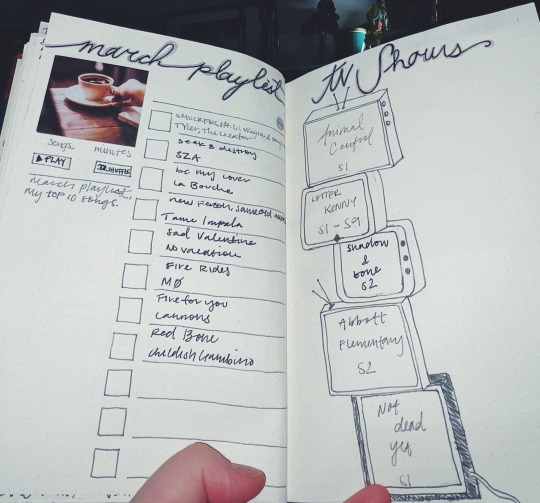 march playlist
songs minutes
PLAY SHUFFLE
march playlist,
my top 10 songs.
SMUCKERS
Tyler, the creator
seek & destroy
SZA
be my lover
La Bouche
new Person, same old
Tame Impala
Sad Valentine
No vacation
Fire Rides
MØ
Fire for you
Cannons
Red Bone
childish Gambino
tv Shows
Animal
Control
S1
LETTER
KENNY
S1 - S9
shadow
&
bone
S2
Abbott
Elementary
S2
Not
dead
yet
S1